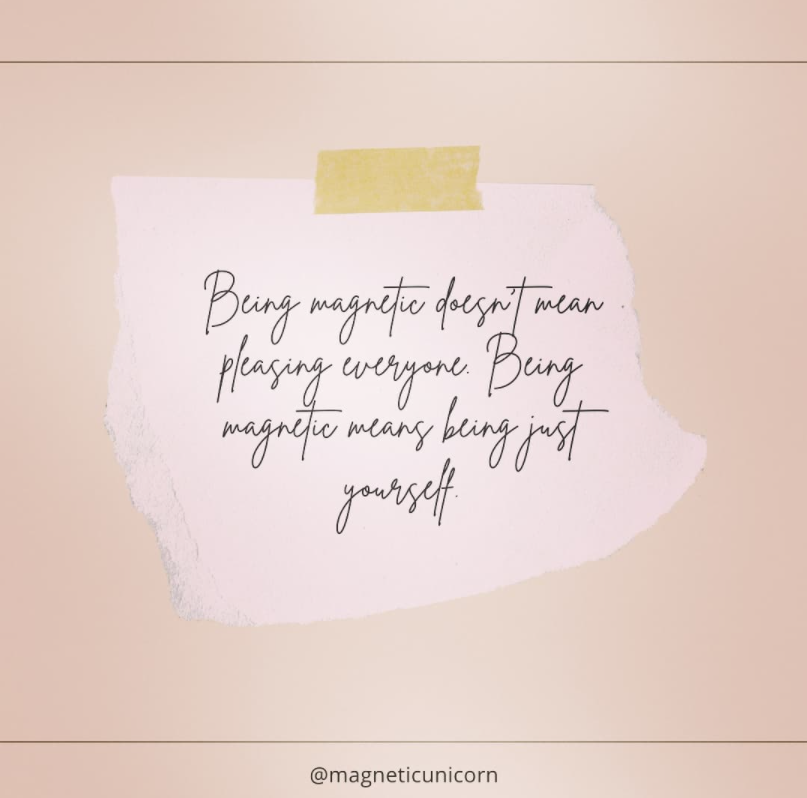 Being magnetic doesn't mean
pleasing everyone. Being
magnetic means being just
yourself.
@magneticunicorn